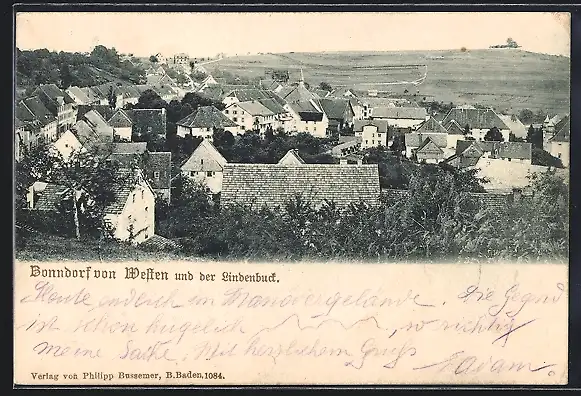 Bonndorf von Westen und der Lindenbuck.
Heute endlich im Manövergelände. Die Gegend
ist schön hügelich so richtig
meine Sache. Mit herzlichem Gruß
Adam
Verlag von Philipp Bussemer, B.Baden.1084.